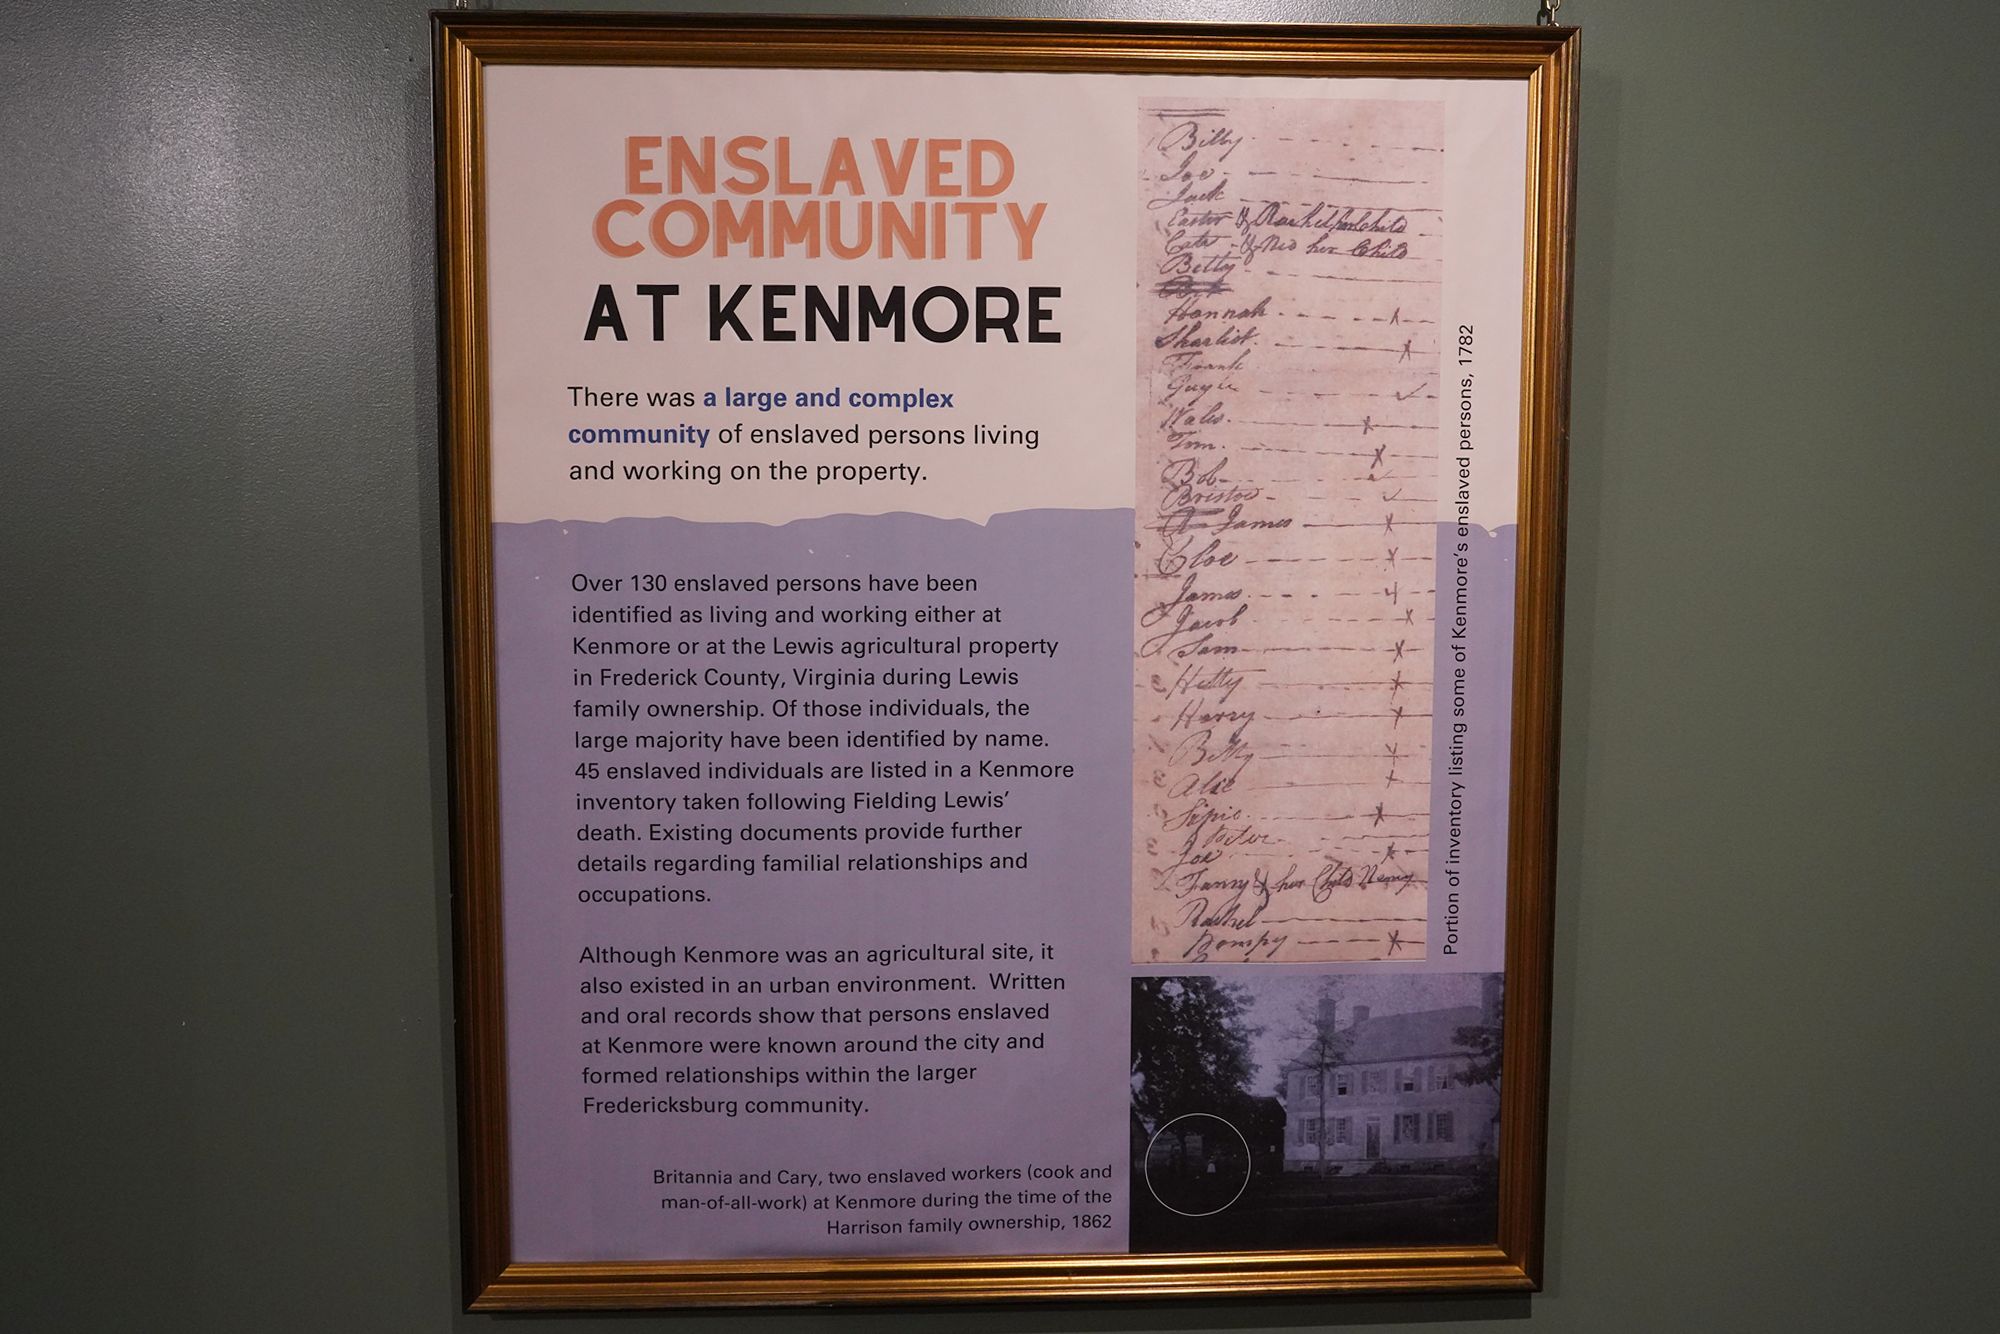 ENSLAVED
COMMUNITY
AT KENMORE
There was a large and complex
community of enslaved persons living
and working on the property.
Over 130 enslaved persons have been
identified as living and working either at
Kenmore or at the Lewis agricultural property
in Frederick County, Virginia during Lewis
family ownership. Of those individuals, the
large majority have been identified by name.
45 enslaved individuals are listed in a Kenmore
inventory taken following Fielding Lewis'
death. Existing documents provide further
details regarding familial relationships and
occupations.
Although Kenmore was an agricultural site, it
also existed in an urban environment. Written
and oral records show that persons enslaved
at Kenmore were known around the city and
formed relationships within the larger
Fredericksburg community.
Britannia and Cary, two enslaved workers (cook and
man-of-all-work) at Kenmore during the time of the
Harrison family ownership, 1862
Billy
Joe
Jack
Rachel her Child
Ned her Child
Betty
Hannah
Sharlist
Frank
Wales
Tom
Bob
Bristow
James
Cloe
James
Jacob
Sam
Hetty
Harry
Betty
Alce
Sipio
Peter
Joe
Fanny & her Child Nancy
Rachel
Pompy
Portion of inventory listing some of Kenmore's enslaved persons, 1782